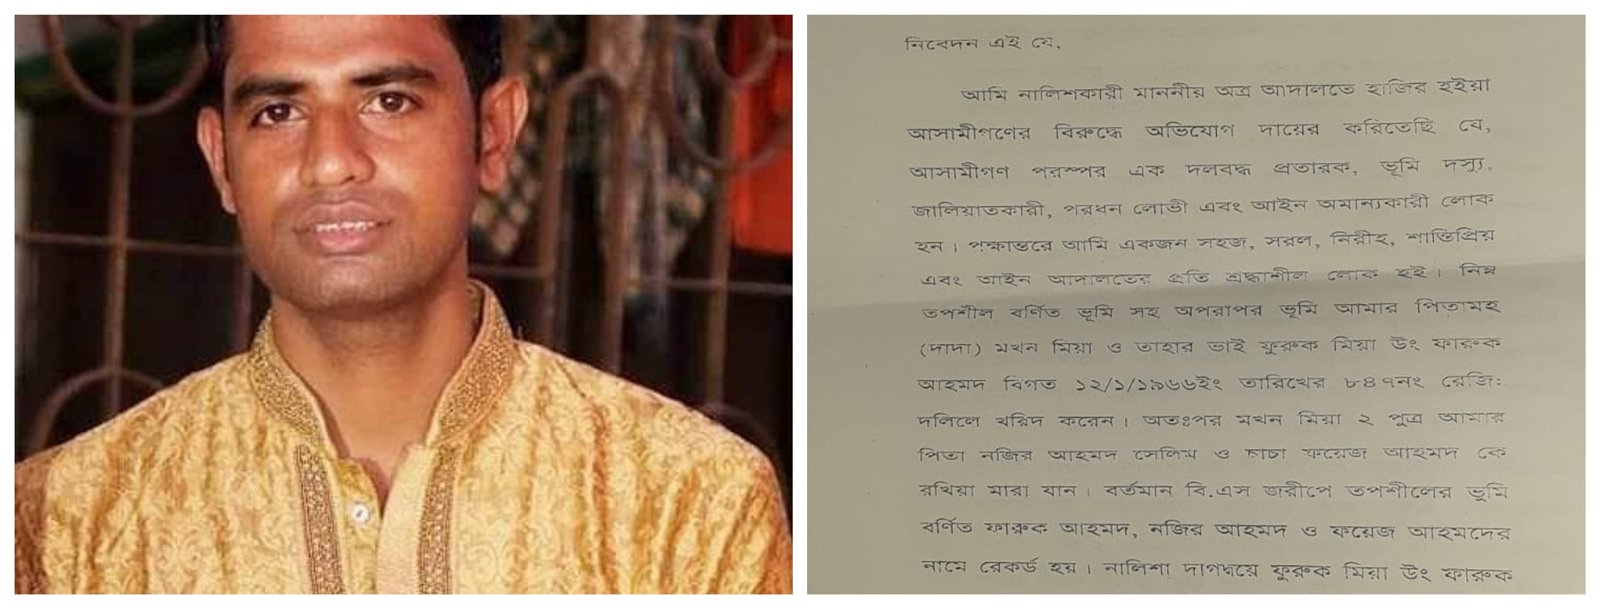 নিবেদন এই যে,
আমি নালিশকারী মাননীয় অত্র আদালতে হাজির হইয়া
আসামীগণের বিরুদ্ধে অভিযোগ দায়ের করিতেছি যে,
আসামীগণ পরস্পর এক দলবদ্ধ প্রতারক, ভূমি দস্যু,
জালিয়াতকারী, পরধন লোভী এবং আইন অমান্যকারী লোক
হন। পক্ষান্তরে আমি একজন সহজ, সরল, নিরীহ, শান্তিপ্রিয়
এবং আইন আদালতের প্রতি শ্রদ্ধাশীল লোক হই। নিম্ন
তপশীল বর্ণিত ভূমি সহ অপরাপর ভূমি আমার পিতামহ
(দাদা) মখন মিয়া ও তাহার ভাই ফুরুক মিয়া উং ফারুক
আহমদ বিগত ১২/১/১৯৬৬ইং তারিখের ৮৪৭নং রেজি:
দলিলে খরিদ করেন। অতঃপর মখন মিয়া ২ পুত্র আমার
পিতা নজির আহমদ সেলিম ও চাচা ফয়েজ আহমদ কে
রখিয়া মারা যান। বর্তমান বি.এস জরীপে তপশীলের ভূমি
বর্ণিত ফারুক আহমদ, নজির আহমদ ও ফয়েজ আহমদের
নামে রেকর্ড হয়। নালিশা দাগদ্বয়ে ফুরুক মিয়া উং ফারুক